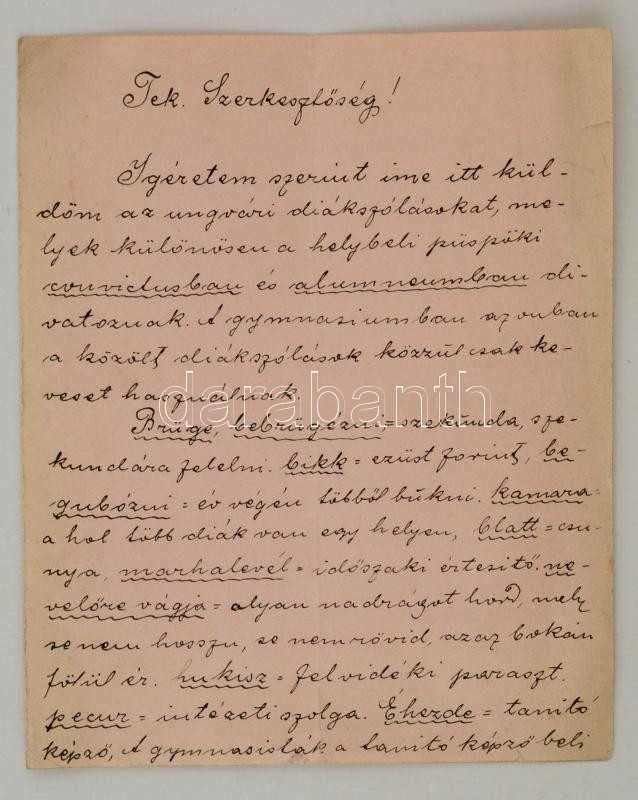 Tek. Szerkesztőség!
Igéretem szerint ime itt kül-
döm az ungvári diákszólásokat, me-
lyek különösen a helybeli püspöki
convictusban és alumneumban di-
vatoznak. A gymnasiumban azonban
a közölt diákszólások közzül csak ke-
veset használnak.
darabanth
Brüge, bebrügézni = szekunda, sze-
kundára felelni. bikk = ezüst forint, be-
gubózni = év végén többől bukni. kamara =
a hol több diák van egy helyen, blatt = csu-
nya, marhalevél = időszaki értesitő. ne-
velőre vágja = olyan nadrágot hord, mely
se nem hosszu, se nem rövid, azaz bokán
fölül ér. hukisz = felvidéki paraszt.
pecur = intézeti szolga. Éhezde = tanitó
képző, A gymnasisták a tanitó képző beli